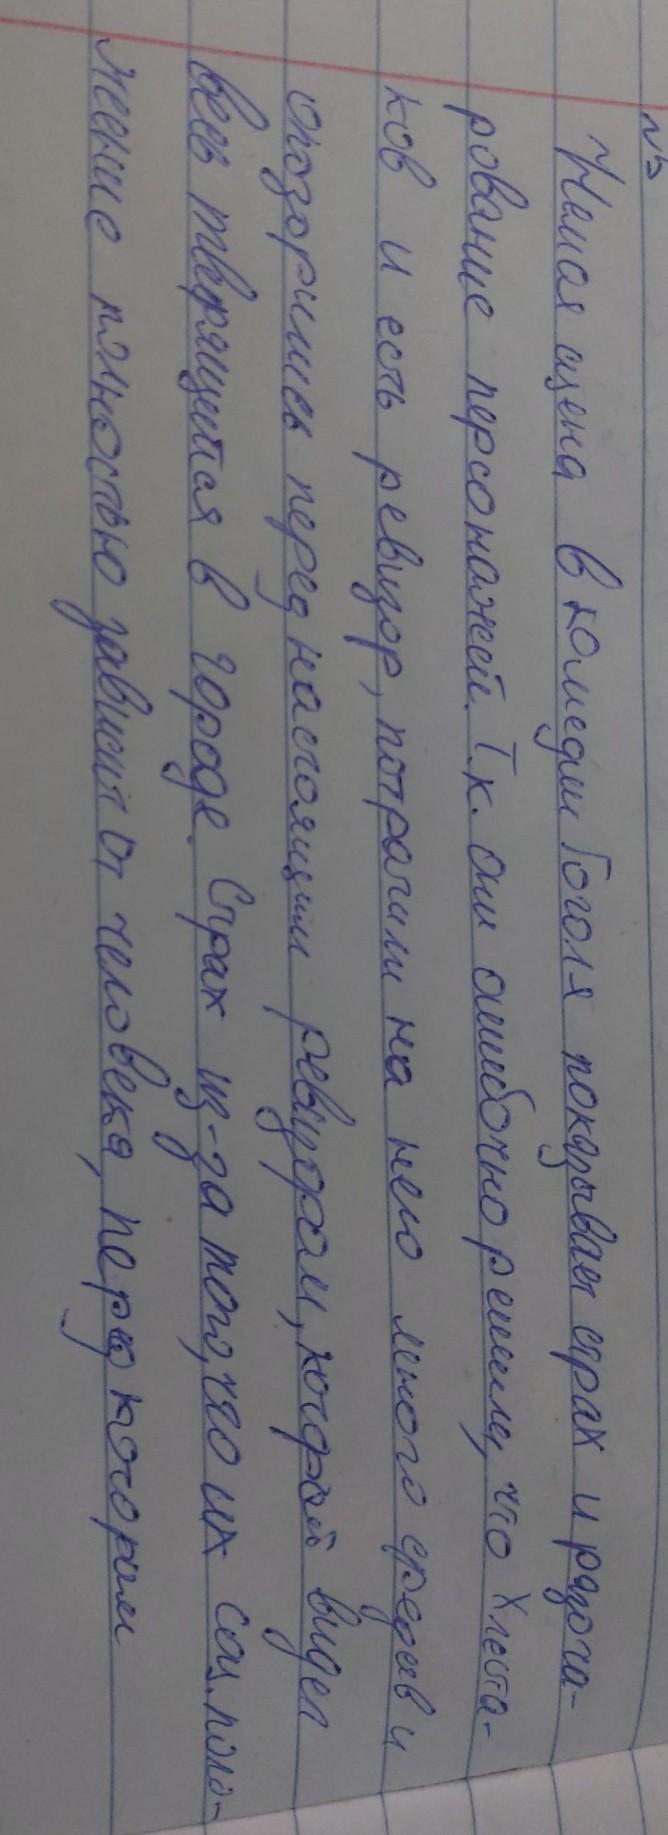 №5
Немая сцена в комедии Гоголя показывает страх и разоча-
рование персонажей. Т.к. они ошибочно решили, что Хлеста-
ков и есть ревизор, потратили на него много средств и
опозорились перед настоящим ревизором, который видел
весь творящийся в городе. Страх из-за того, что их соц. поло-
жение полностью зависит от человека, перед которым